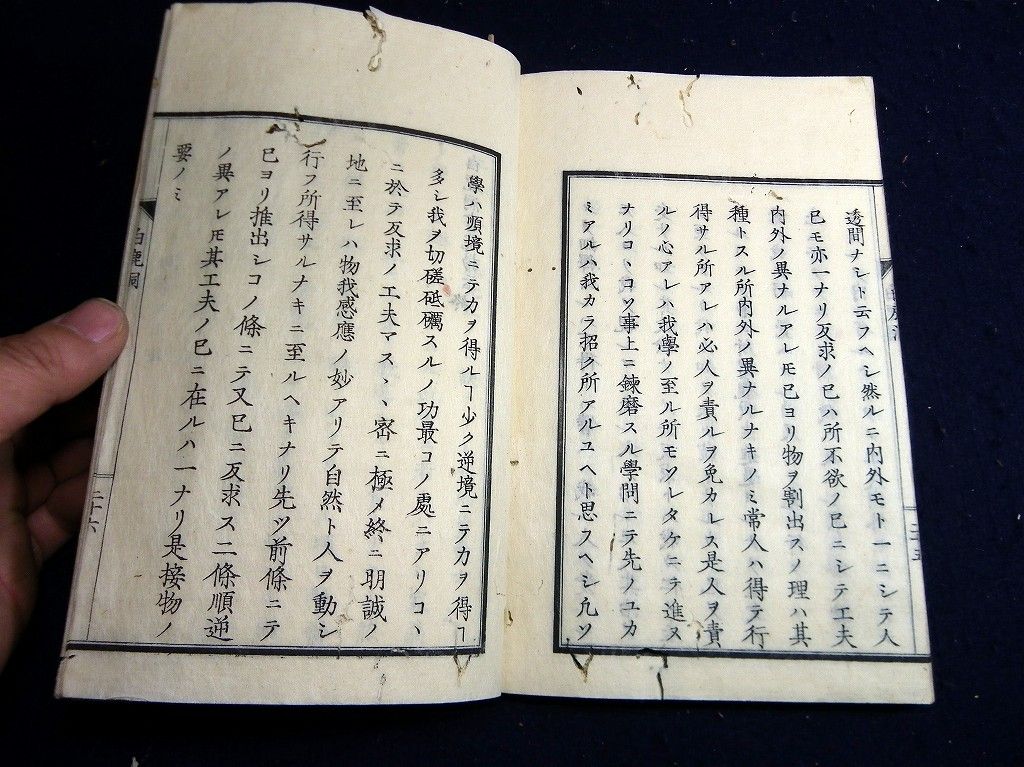 透間ナシト云フヘシ然ルニ内外モト一ニシテ人
已モ亦一ナリ反求ノ已ハ所不欲ノ已ニシテ工夫
内外ノ異ナルアレ𪜈已ヨリ物ヲ割出スノ理ハ其
種トスル所内外ノ異ナルナキノミ常人ハ得テ行
得サル所アレハ必人ヲ責ルヲ免カレス是人ヲ責
ルノ心アレハ我學ノ至ル所モソレタケニテ進ヌ
ナリコヽコソ事上ニ鍊磨スル學問ニテ先ノユカ
ミアルハ我カラ招ク所アルユヘト思フヘシ凢ソ
二十五
學ハ順境ニテ力ヲ得ルヿ少ク逆境ニテ力ヲ得ヿ
多シ我ヲ切磋砥礪スルノ功最コノ處ニアリコヽ
ニ於テ反求ノ工夫マスヽ密ニ極メ終ニ明誠ノ
地ニ至レハ物我感應ノ妙アリテ自然ト人ヲ動シ
行フ所得サルナキニ至ルヘキナリ先ツ前條ニテ
已ヨリ推出シコノ條ニテ又已ニ反求ス二條順逆
ノ異アレ𪜈其工夫ノ已ニ在ルハ一ナリ是接物ノ
要ノミ
白鹿洞
二十六